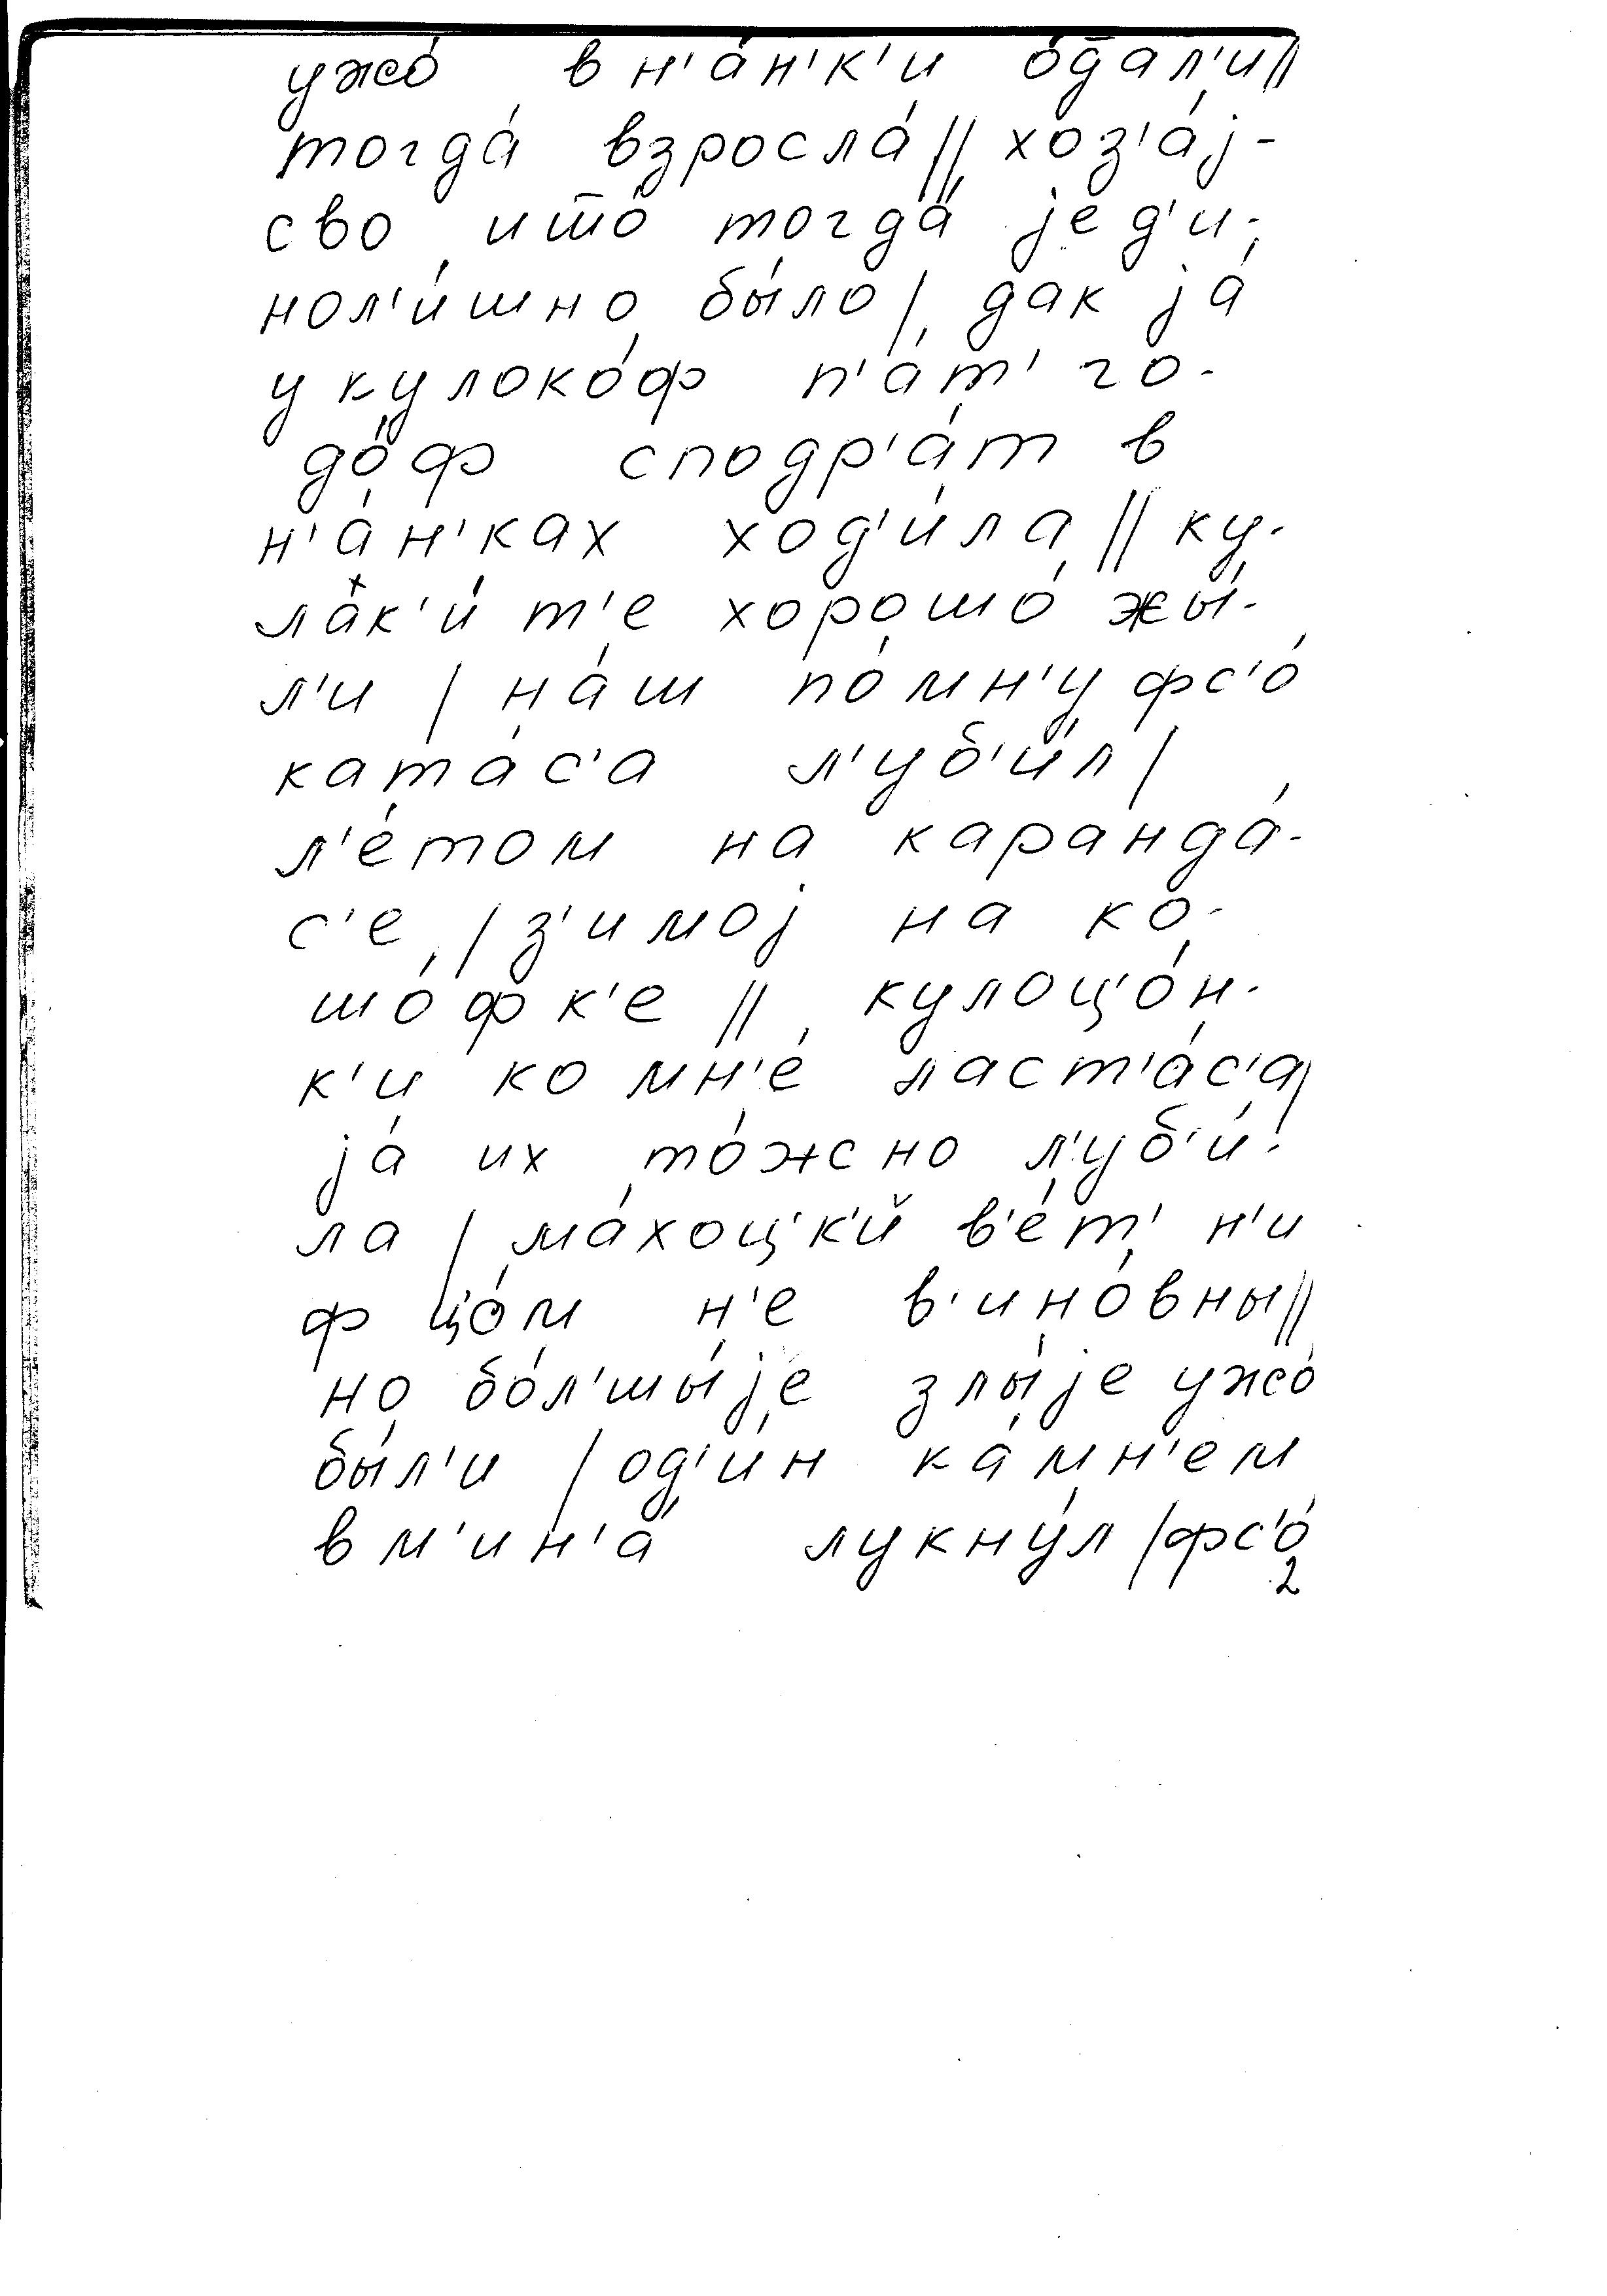 ужо́ в н'а́н'к'и о́д̅ал'и ||
тогда́ взросла́ || хоз'а́ј-
сво и што̅ тогда́ јед'и-
нол'и́шно бы́ло | дак ја́
у кулоко́ф п'а́т' го-
до́ф сподр'а́т в
н'а́н'ках ход'и́ла || ку-
лак'и́ т'е хорошо́ жы́-
л'и | на́ш по́мн'у фс'о́
ката́с'а л'уб'и́л |
л'е́том на каранда́-
с'е | з'имој на ко-
шо́фк'е || кулоц'о́н-
к'и ко мн'е́ ласт'а́с'а |
ја́ их то́жно л'уб'и́-
ла | ма́хоц'к'й в'е́т' н'и
ф ц'о́м н'е в'ино́вны ||
но бо́л'шы́је злы́је ужо́
бы́л'и | од'и́н ка́мн'ем
в м'ин'а́ лукну́л | фс'о́
2